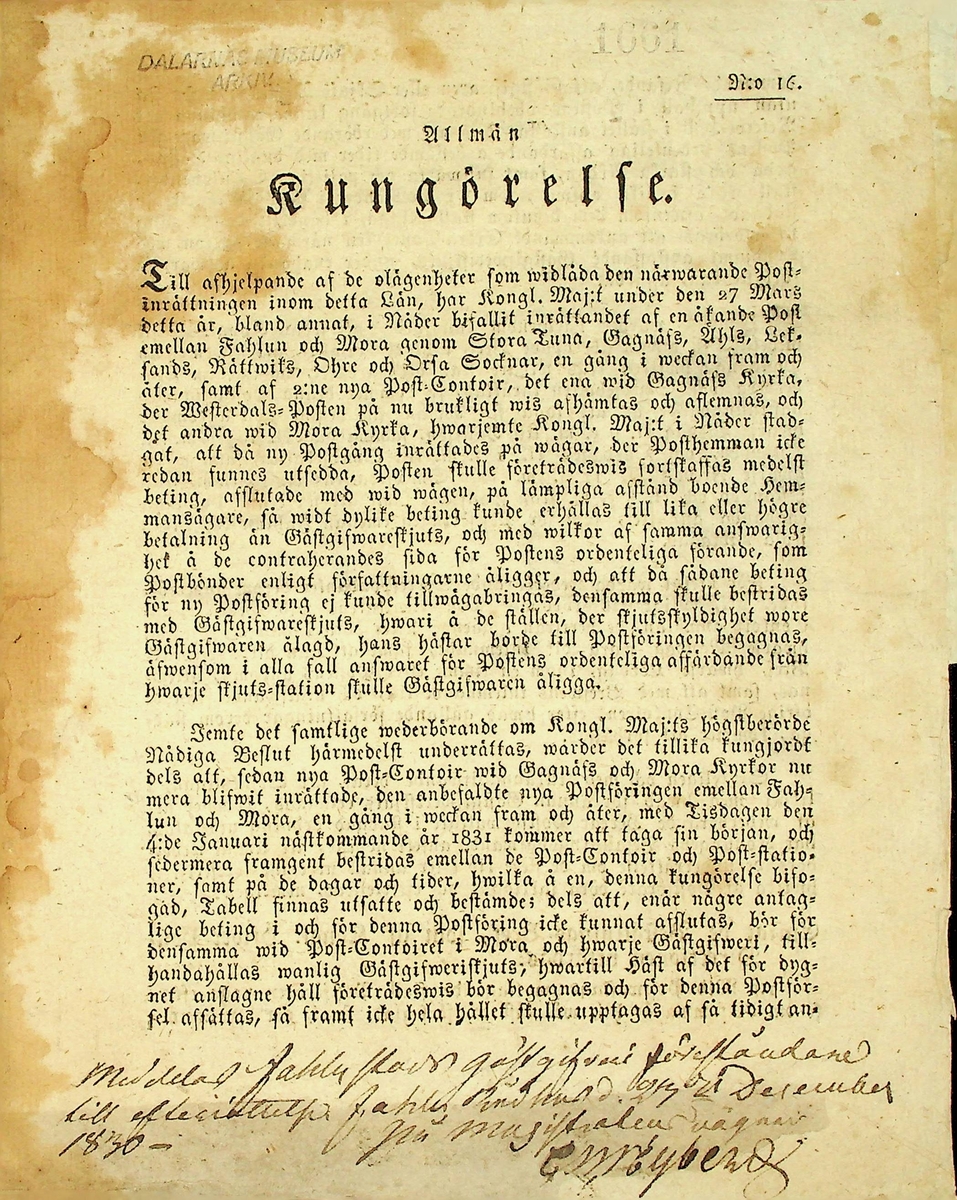 1661
DALARNAS MUSEUM
ARKIV
N:o 16.
Allmän
Kungörelse.
Till afhjelpande af de olägenheter som widlåda den närwarande Post-
inrättningen inom detta Län, har Kongl. Maj:t under den 27 Mars
detta år, bland annat, i Nåder bifallit inrättandet af en åkande Post
emellan Fahlun och Mora genom Stora Tuna, Gagnäfs, Åhls, Lek-
sands, Rättwiks, Ohre och Orsa Socknar, en gång i weckan fram och
åter, samt af 2:ne nya Post-Contoir, det ena wid Gagnäfs Kyrka,
der Westerdals-Posten på nu brukligt wis afhämtas och aflemnas, och
det andra wid Mora Kyrka, hwarjemte Kongl. Maj:t i Nåder stad-
gat, att då ny Postgång inrättades på wägar, der Posthemman icke
redan funnes utsedda, Posten skulle företrädeswis fortskaffas medelst
beting, afslutade med wid wägen, på lämpliga afstånd boende Hem-
mansägare, så widt dylike beting kunde erhållas till lika eller högre
betalning än Gästgifwareskjuts, och med wilkor af samma answarig-
het å de contraherandes sida för Postens ordenteliga förande, som
Postbönder enligt författningarne åligger, och att då sådane beting
för ny Postföring ej kunde tillwägabringas, densamma skulle bestridas
med Gästgifwareskjuts, hwari å de ställen, der skjutsskyldighet wore
Gästgifwaren ålagd, hans hästar borde till Postföringen begagnas,
äfwensom i alla fall answaret för Postens ordenteliga affärdande från
hwarje skjuts-station skulle Gästgifwaren åligga.
Jemte det samtlige wederbörande om Kongl. Maj:ts högstberörde
Nådiga Beslut härmedelst underrättas, warder det tillika kungjordt
dels att, sedan nya Post-Contoir wid Gagnäfs och Mora Kyrkor nu
mera blifwit inrättade, den anbefaldte nya Postföringen emellan Fah-
lun och Mora, en gång i weckan fram och åter, med Tisdagen den
4:de Januari nästkommande år 1831 kommer att taga sin början, och
sedermera framgent bestridas emellan de Post-Contoir och Post-statio-
ner, samt på de dagar och tider, hwilka å en, denna kungörelse bifo-
gad, Tabell finnas utsatte och bestämde; dels att, enär någre antag-
lige beting i och för denna Postföring icke kunnat afslutas, bör för
densamma wid Post-Contoiret i Mora och hwarje Gästgifweri, till-
handahållas wanlig Gästgifweriskjuts; hwartill Häst af det för dyg-
net anslagne håll företrädeswis bör begagnas och för denna Postför-
sel afsättas, så framt icke hela hållet skulle upptagas af så tidigt an-
Meddelas Fahlu stads gästgifveri föreståndare
till efterrättelse Fahlu Rådhus d. 27 December
1830 — På Magistratens vägnar